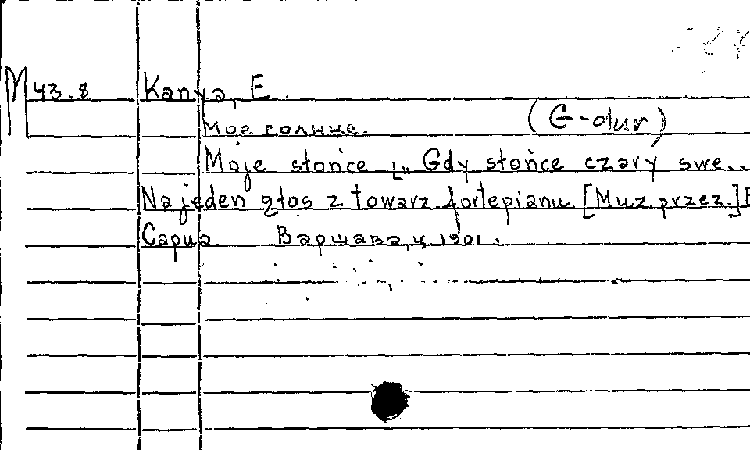 M 43.8 Kanya, E.
Мое солнце. (G-dur)
Moje słońce [„Gdy słońce czary swe..
Na jeden głos z towarz. fortepianu [Muz. przez.] E
Capua. Варшава, ц. 1901.